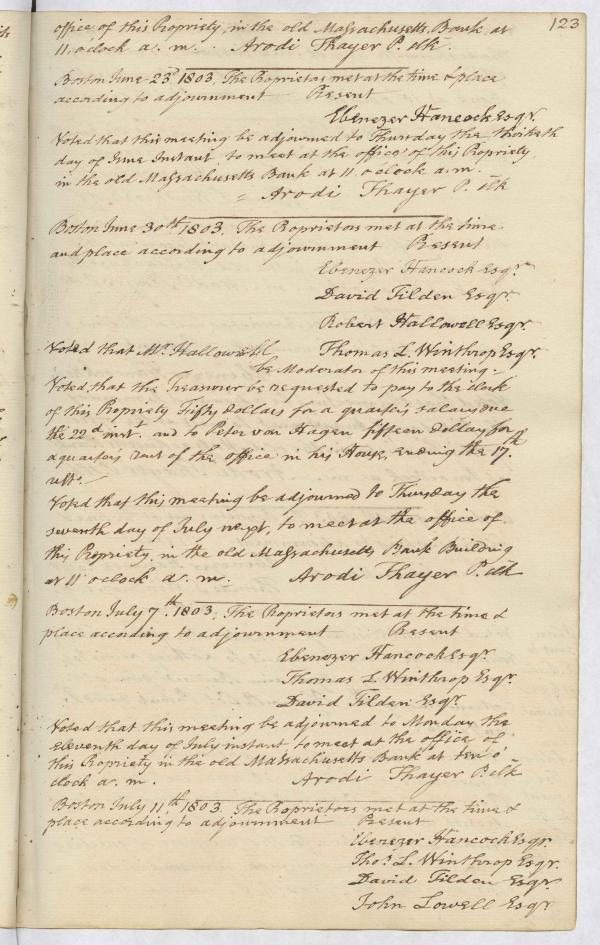 123
office of this Propriety, in the old Massachusetts Bank at
11, oClock a. m. . Arodi Thayer P. clk.
Boston June 23d 1803, The Proprietors met at the time & place
according to adjournment Present
Ebenezer Hancock Esqr.
Voted that this meeting be adjourned to Thursday the thirtieth
day of June Instant, to meet at the office of this Propriety,
in the old Massachusetts Bank at 11. oclock a.m.
Arodi Thayer P. clk
Boston June 30th 1803, The Proprietors met at the time
and place according to adjournment Present
Ebenezer Hancock Esqr.
David Tilden Esqr.
Robert Hallowell Esqr.
Voted that Mr. Hallowell Thomas L. Winthrop Esqr.
be Moderator of this meeting.
Voted, that the Treasurer be requested to pay to the clerk
of this Propriety Fifty dollars for a quarter's salary due
the 22d inst. and to Peter von Hagen fifteen dollars for
a quarter's rent of the office in his House, ending the 17th.
ulto.
Voted that this meeting be adjourned to Thursday the
seventh day of July next, to meet at the office of
this Propriety, in the old Massachusetts Bank Building
at 11 oclock a. m. Arodi Thayer P. clk
Boston July 7th. 1803, The Proprietors met at the time &
place according to adjournment Present
Ebenezer Hancock Esqr.
Thomas L Winthrop Esqr.
David Tilden Esqr.
Voted that this meeting be adjourned to Monday the
eleventh day of July instant, to meet at the office of
this Propriety in the old Massachusetts Bank at ten o'
clock a. m. Arodi Thayer P. clk
Boston July 11th 1803. The Proprietors met at the time &
place according to adjournment Present
Ebenezer Hancock Esqr.
Thos. L. Winthrop Esqr.
David Tilden Esqr.
John Lowell Esqr